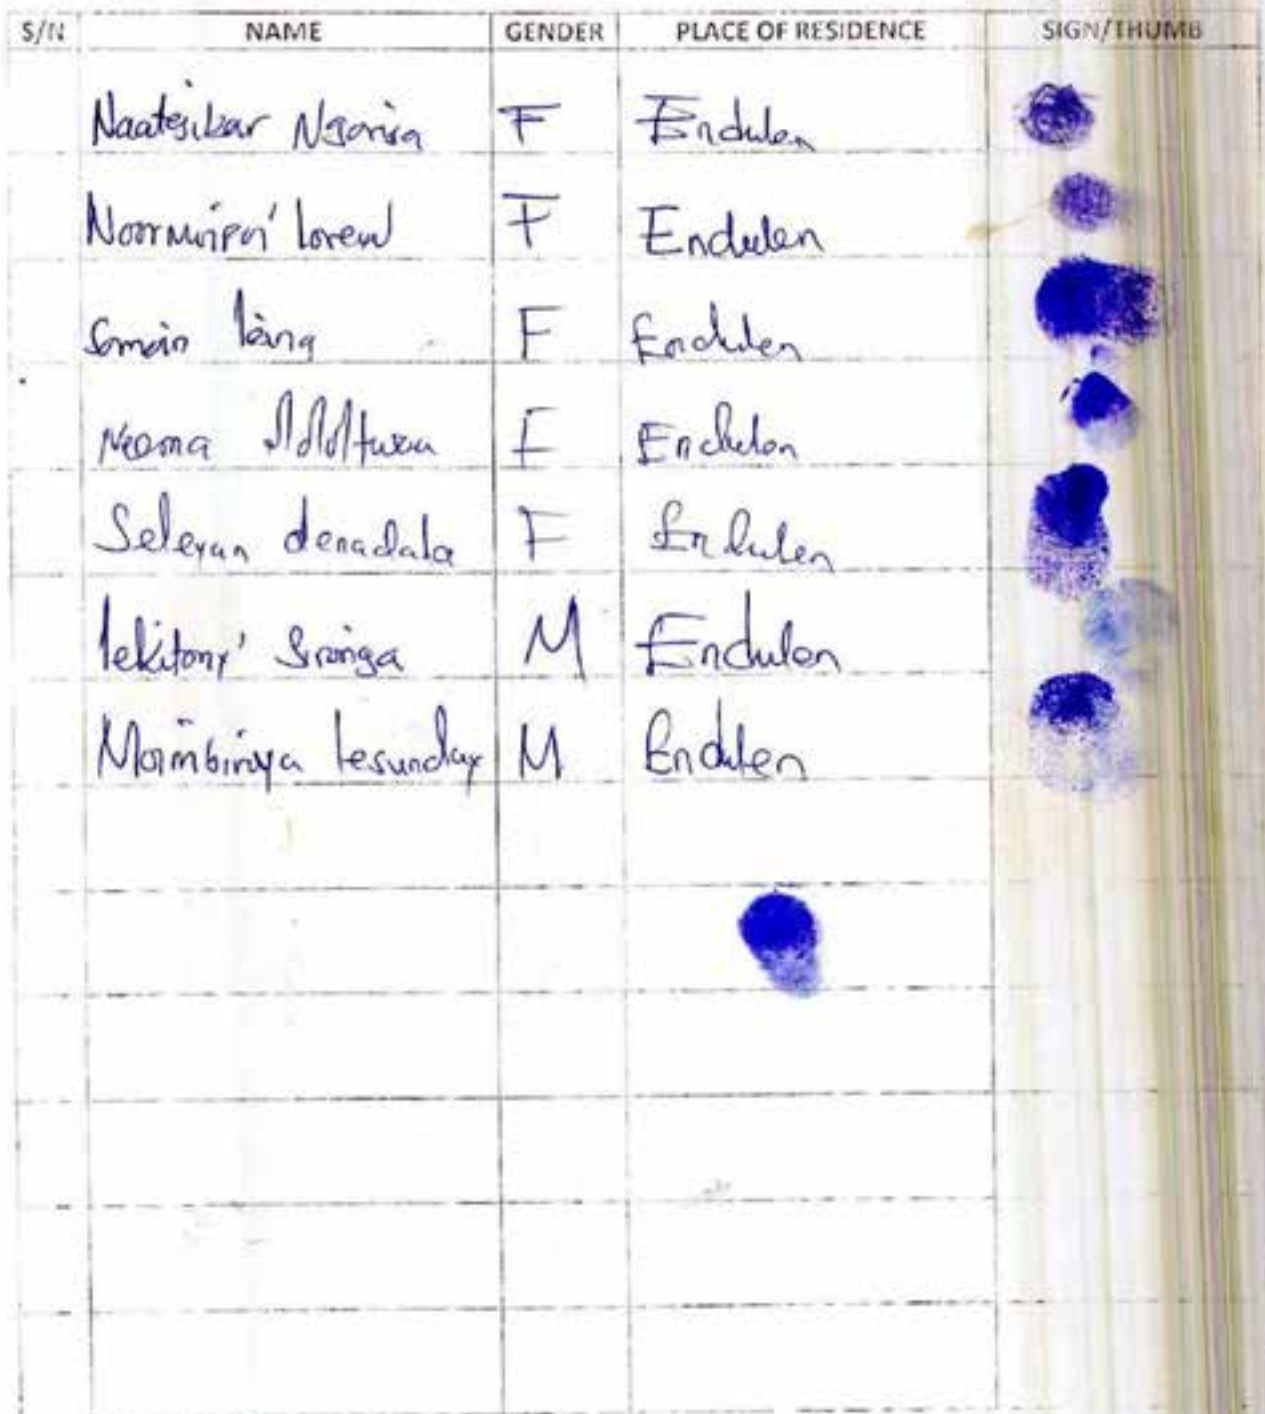 S/N NAME GENDER PLACE OF RESIDENCE SIGN/THUMB
Naatejikar Ngorisa F Endulen
Noormeipoi' loreu F Endulen
Somoin F Endulen
Neema F Endulen
Seleyan denadala F Endulen
lekitony' Sironga M Endulen
Moimbinya lesunday M Endulen